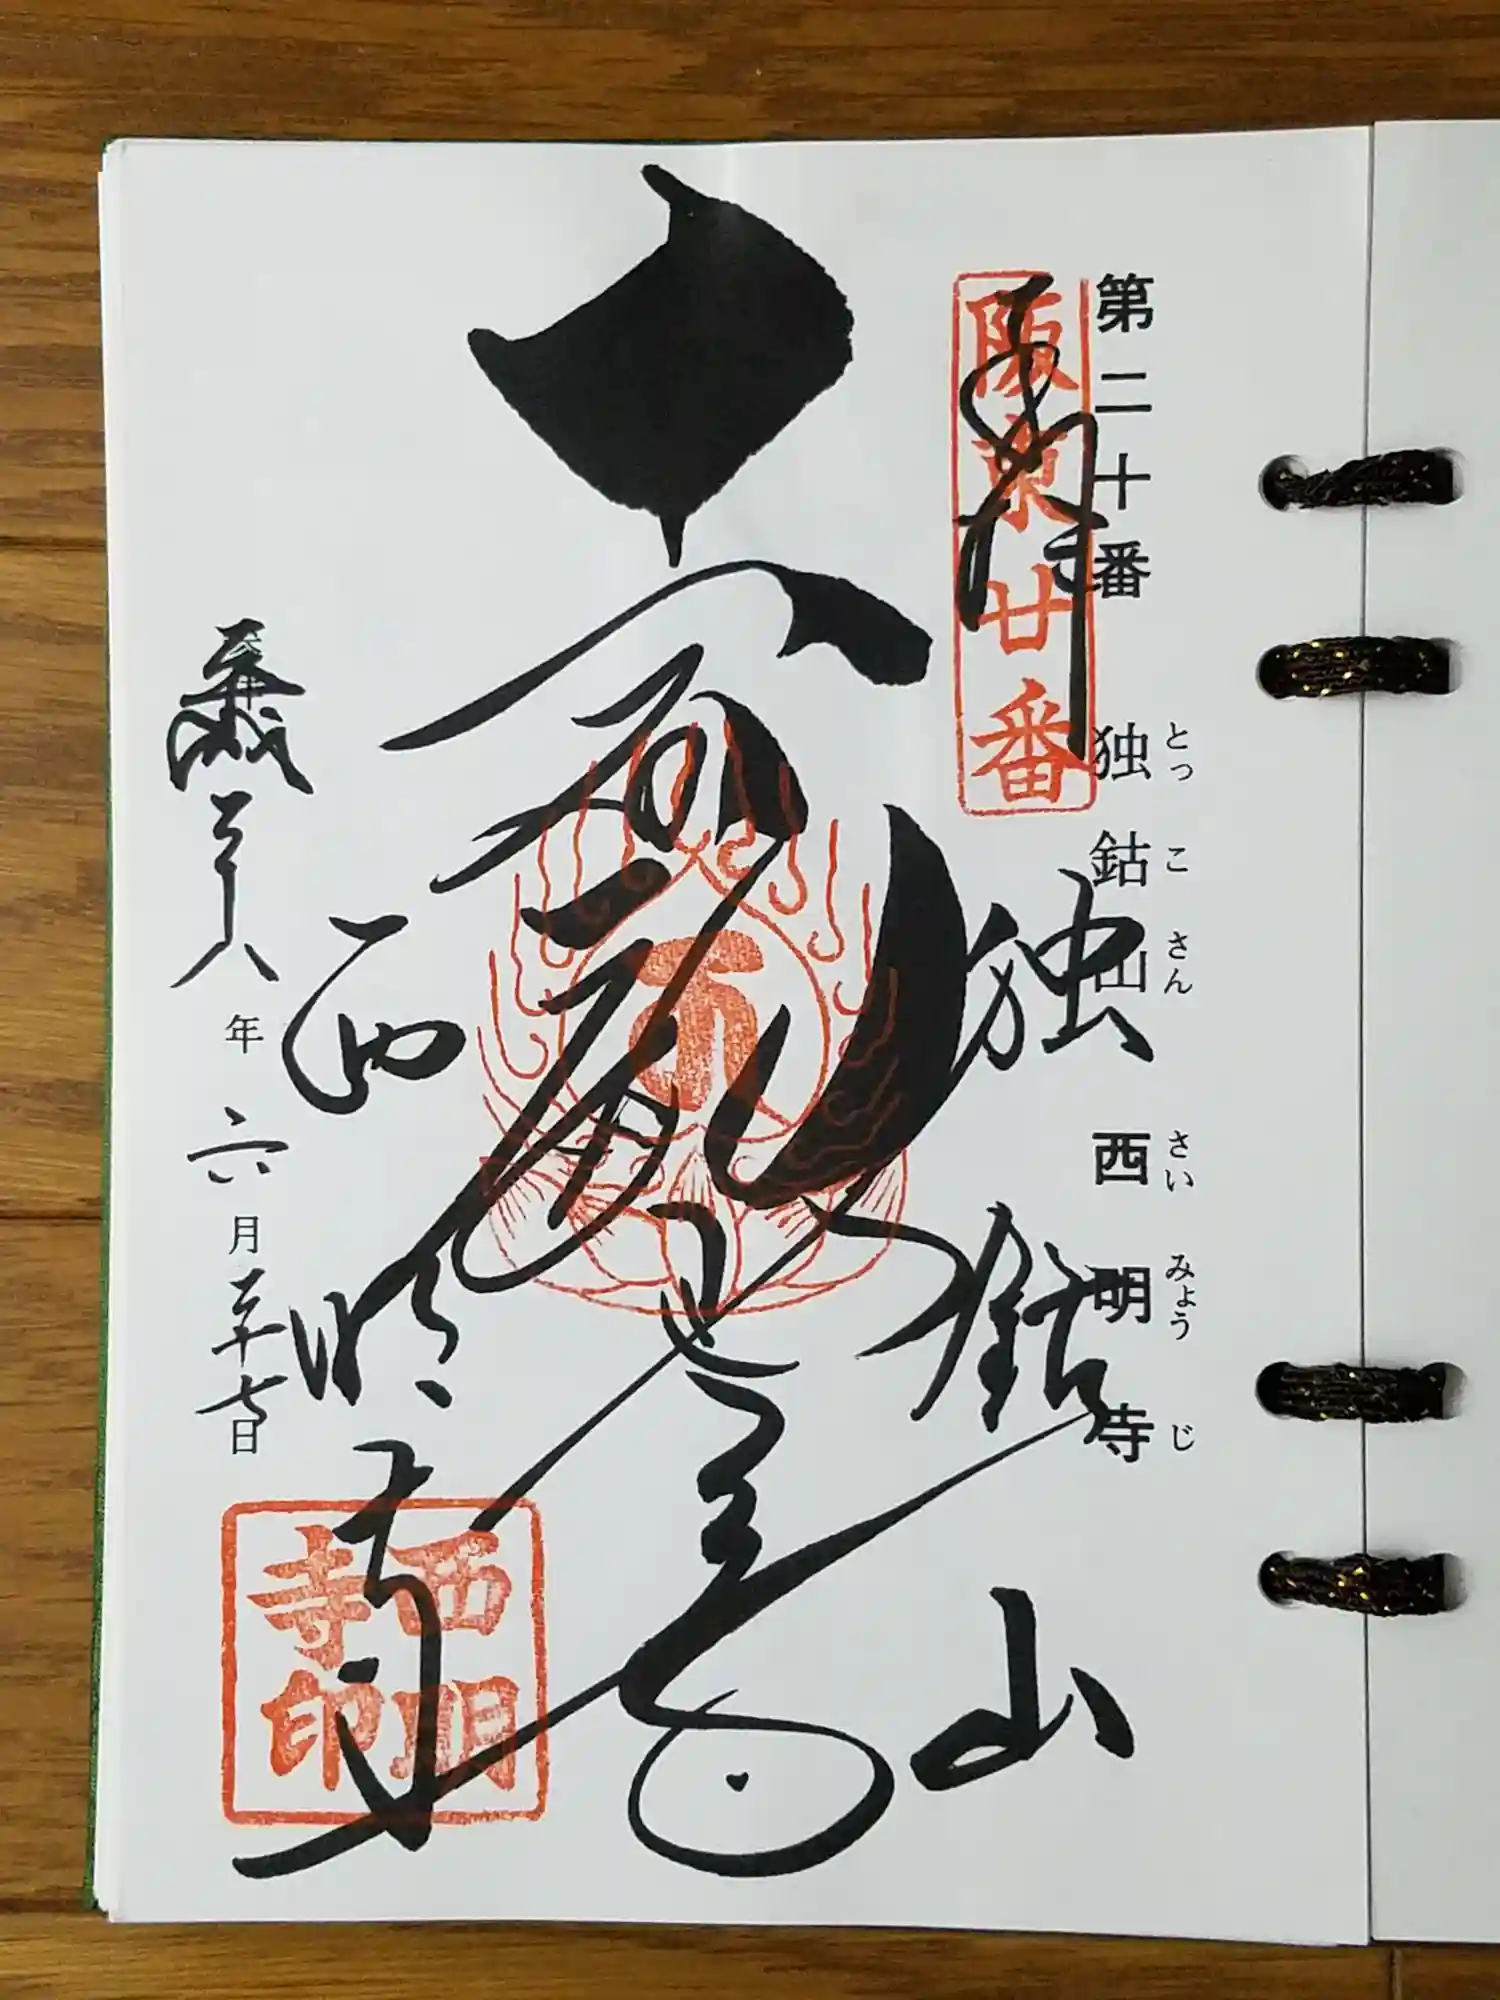 第二十番
独鈷山 西明寺
とっこさん さいみょうじ
阪東廿番
奉拝
独鈷山
西明寺
平成二十八年六月二十七日
西明寺印